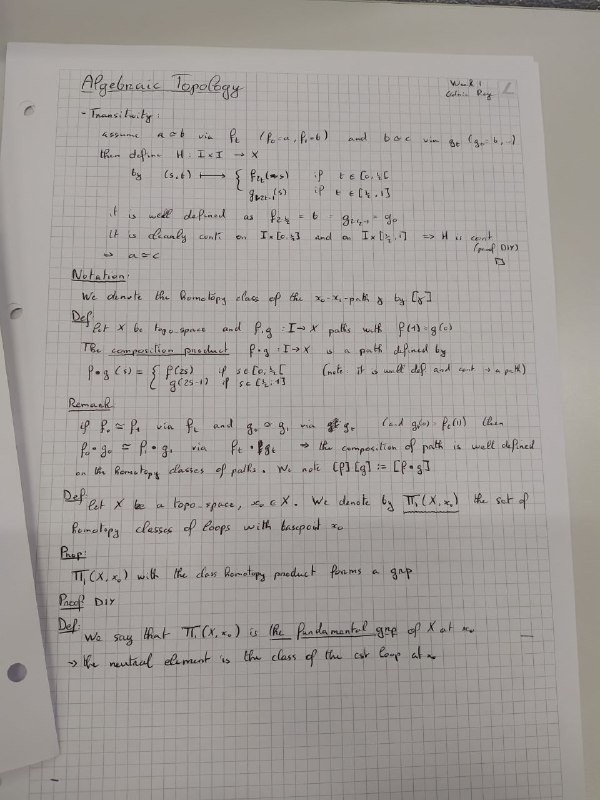 Algebraic Topology
Week 1
- Transitivity:
assume a ≃ b via f_t (f_0 = a, f_1 = b) and b ≃ c via g_t (g_0 = b, ...)
then define H : I × I → X
by (s,t) ⟼ { f_2t(s) if t ∈ [0,½[
g_2t-1(s) if t ∈ [½,1]
it is well defined as f_2·½ = b = g_2·½-1 = g_0
It is clearly cont. on I×[0,½] and on I×[½,1] ⇒ H is cont
(proof DIY)
⇒ a ≃ c □
Notation:
We denote the homotopy class of the x_0-x_1-path γ by [γ]
Def:
let X be topo-space and f,g : I → X paths with f(1) = g(0)
The composition product f•g : I → X is a path defined by
f•g (s) = { f(2s) if s ∈ [0,½[ (note: it is well def and cont → a path)
g(2s-1) if s ∈ [½,1]
Remark:
if f_0 ≃ f_1 via f_t and g_0 ≃ g_1 via g_t (and g_t(0) = f_t(1)) then
f_0•g_0 ≃ f_1•g_1 via f_t•g_t → the composition of path is well defined
on the homotopy classes of paths. We note [f][g] := [f•g]
Def:
let X be a topo-space, x_0 ∈ X. We denote by Π_1(X,x_0) the set of
homotopy classes of loops with basepoint x_0
Prop:
Π_1(X,x_0) with the class homotopy product forms a grp
Proof: DIY
Def:
We say that Π_1(X,x_0) is the fundamental grp of X at x_0
→ the neutral element is the class of the cst loop at x_0